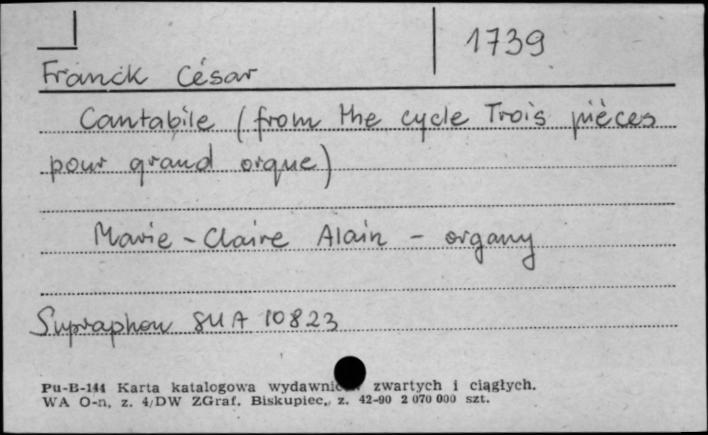 1739
Franck César
Cantabile (from the cycle Trois pièces
pour grand orgue)
Marie-Claire Alain - organy
Supraphon SUA 10823
Pu-B-144 Karta katalogowa zwartych i ciągłych.
WA O-n, z. 4/DW ZGraf. Biskupiec, z. 42-90 2 070 000 szt.